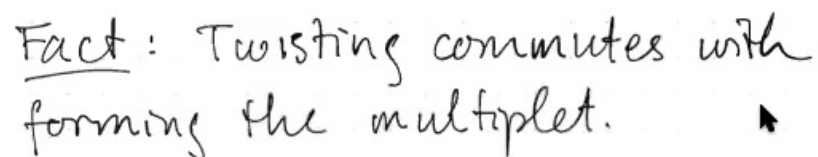 Fact: Twisting commutes with
forming the multiplet.